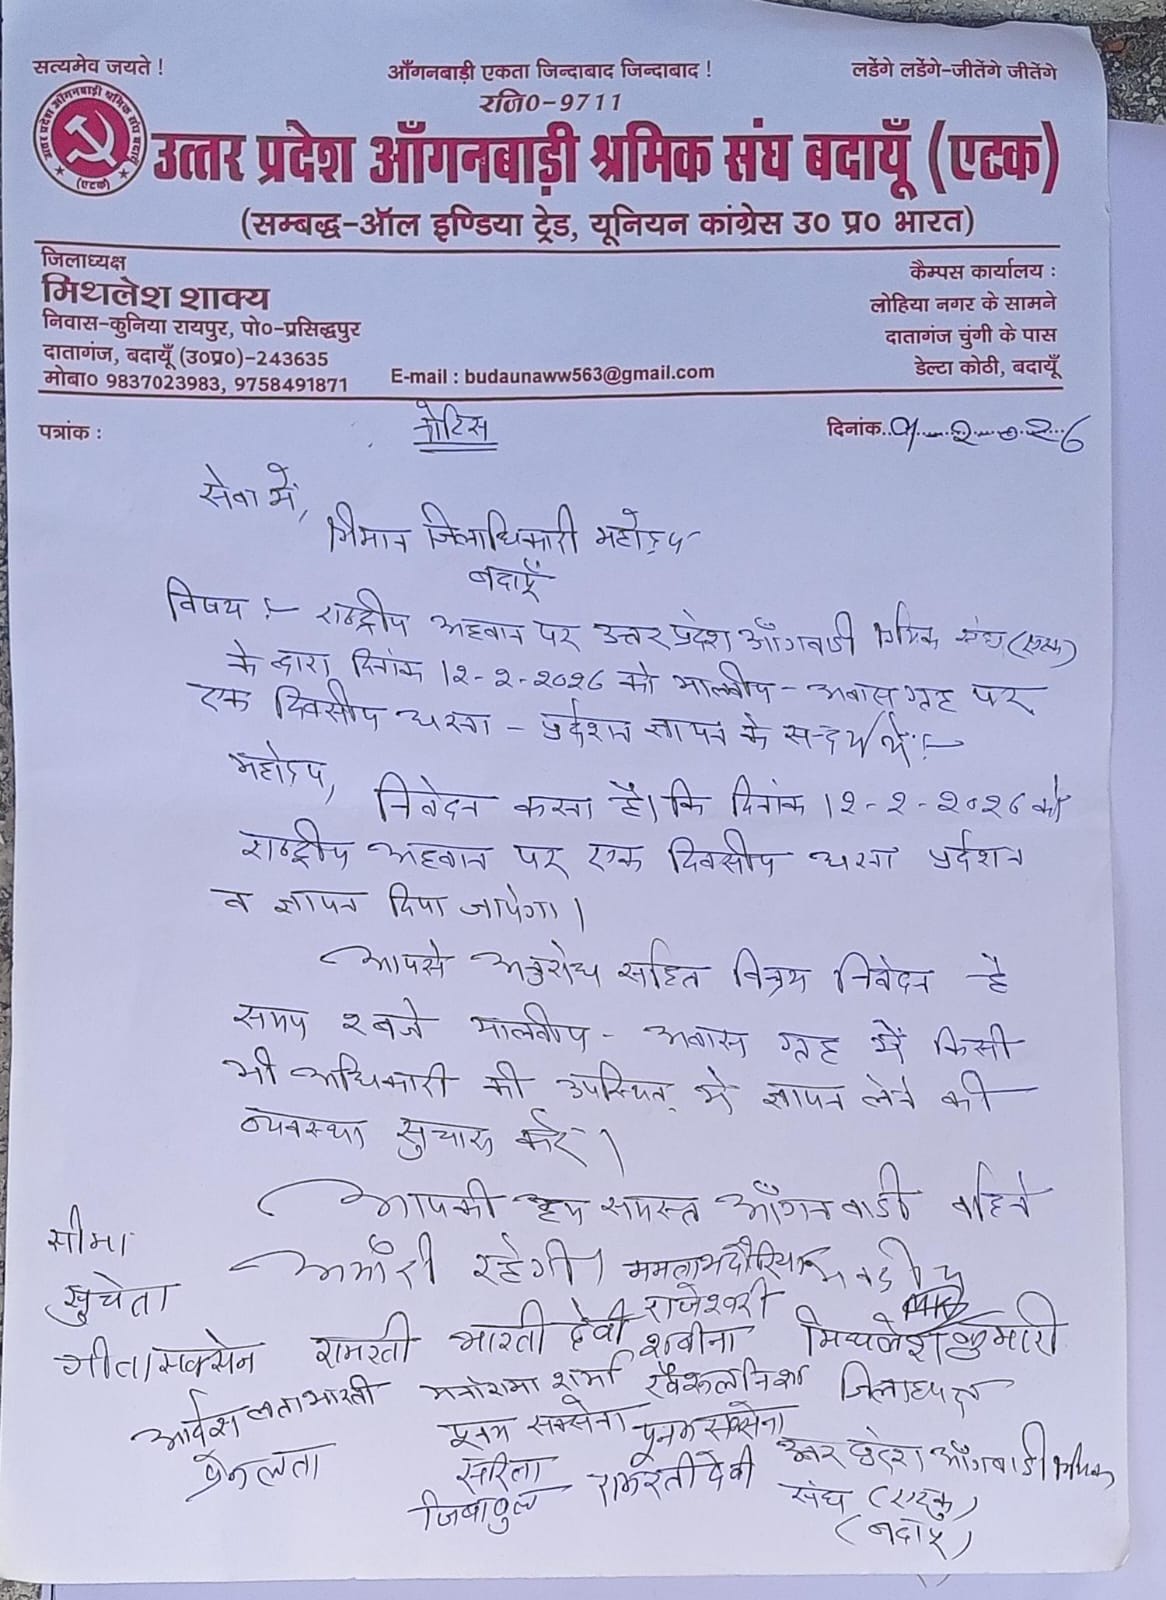 सत्यमेव जयते !
आँगनबाड़ी एकता जिन्दाबाद जिन्दाबाद !
लडेंगे लडेंगे-जीतेंगे जीतेंगे
रजि०-9711
उत्तर प्रदेश आँगनबाड़ी श्रमिक संघ बदायूँ (एटक)
(सम्बद्ध-ऑल इण्डिया ट्रेड, यूनियन कांग्रेस उ० प्र० भारत)
जिलाध्यक्ष
मिथलेश शाक्य
निवास-कुनिया रायपुर, पो०-प्रसिद्धपुर
दातागंज, बदायूँ (उ०प्र०)-243635
मोबा० 9837023983, 9758491871
E-mail : budaunaww563@gmail.com
कैम्पस कार्यालय :
लोहिया नगर के सामने
दातागंज चुंगी के पास
डेल्टा कोठी, बदायूँ
पत्रांक :
नोटिस
दिनांक..9...2...2026
सेवा में,
श्रीमान जिलाधिकारी महोदय
बदायूँ
विषय :- राष्ट्रीय अहवान पर उत्तर प्रदेश आँगबाडी श्रमिक संघ (एटक)
के द्वारा दिनांक 12-2-2026 को मालवीय - अवास गृह पर
एक दिवसीय धरना - प्रर्दशन ज्ञापन के सन्दर्भ में :-
महोदय,
निवेदन करना है। कि दिनांक 12-2-2026 को
राष्ट्रीय अहवान पर एक दिवसीय धरना प्रर्दशन
व ज्ञापन दिया जायेगा।
आपसे अनुरोध सहित विनम्र निवेदन है
समय 2 बजे मालवीय - अवास गृह में किसी
भी अधिकारी की उपस्थित में ज्ञापन लेने की
व्यवस्था सुचारू करें।
आपकी हम समस्त आँगनबाडी बहिने
अभारी रहेगी।
ममता भदौरिया
सीमा
सुचेता
राजेश्वरी
गीता सक्सेन रामरती भारती देवी शबीना मिथलेश कुमारी
आदेश लता भारती मनोरमा शर्मा जिलाध्यक्ष
प्रेमलता पूनम सक्सेना पूनम सक्सेना
सरिता रामरती देवी उत्तर प्रदेश आँगबाडी श्रमिक
संघ (एटक)
(बदायूँ)